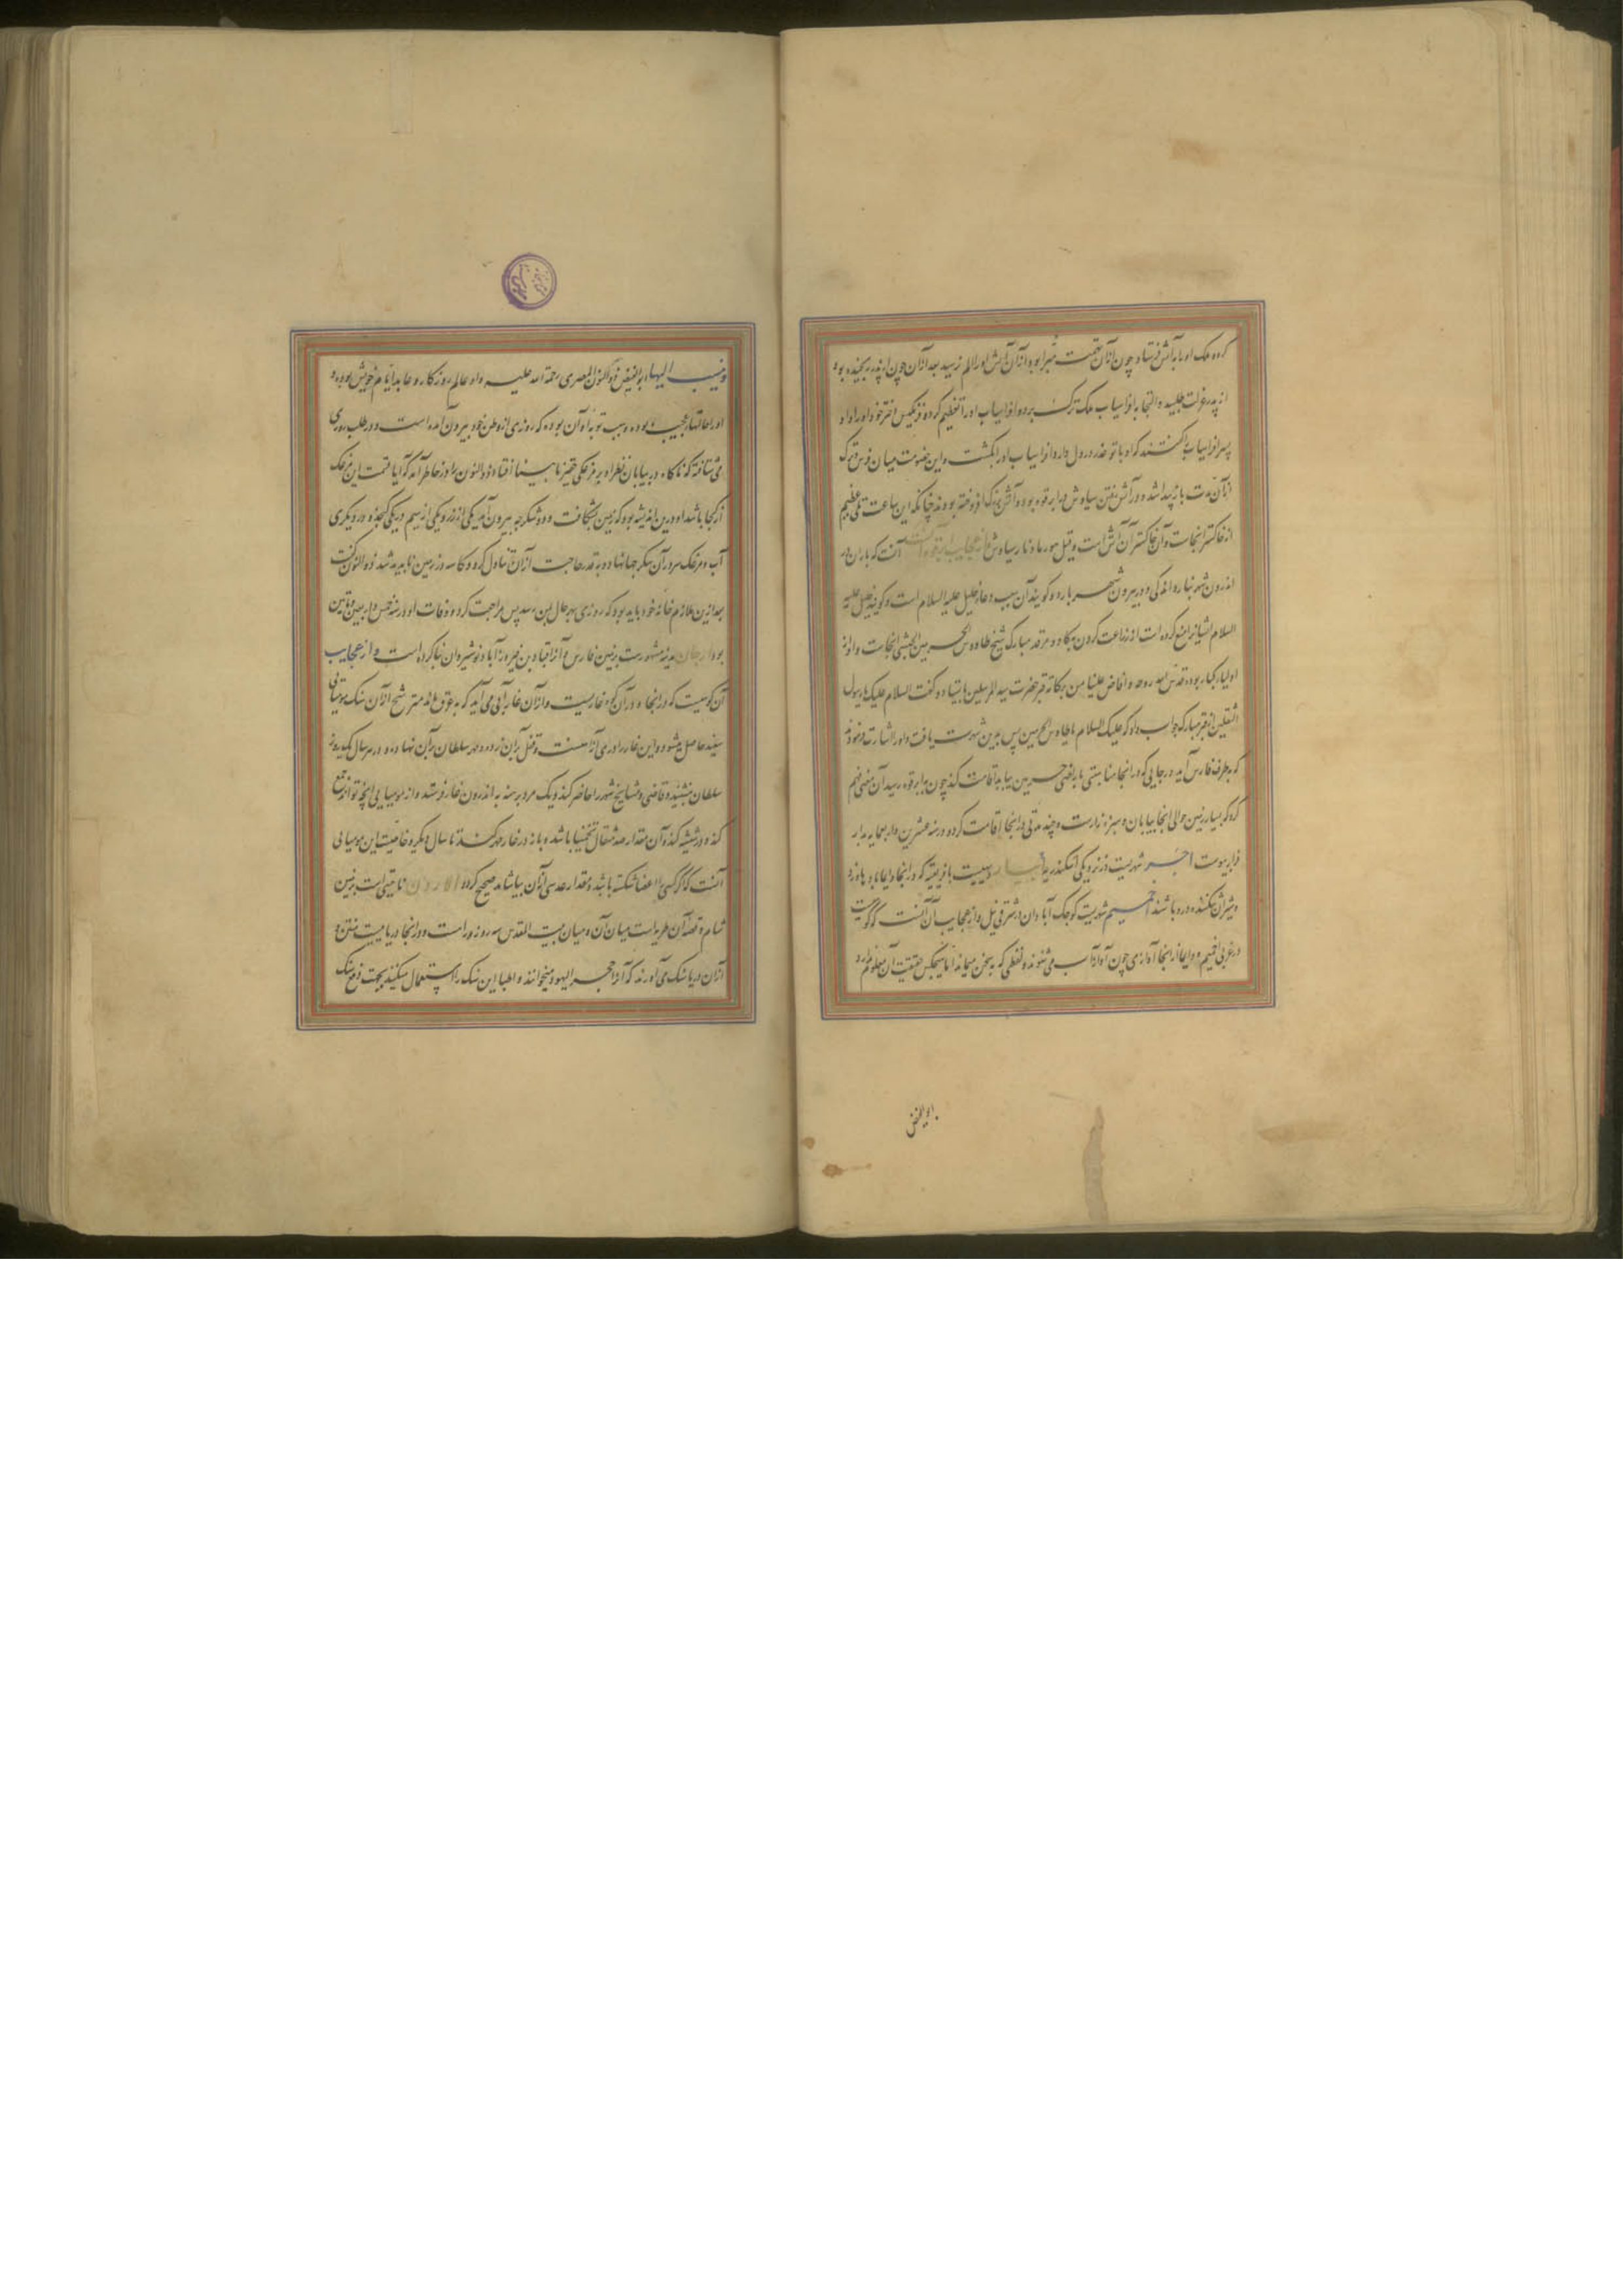 کرده ملک او را بآتش فرستاد چون ازان تهمت مبرا بود ازان آتش او را الم نرسید بعد ازان چون از پدر رنجیده بود
از پدر عزلت طلبید و التجا بافراسیاب ملک ترک برد و افراسیاب او را تعظیم کرده فرنگیس دختر خود او را داد
پسر افراسیاب را گفتند که او با تو غدر در دل دارد افراسیاب او را بکشت و این خصومت میان فرس و ترک
از آن مدت باز پیدا شده و در آتش رفتن سیاوش در ابرقوه بوده و آتش بزرگ افروخته بودند چنانکه این ساعت تلی عظیم
از خاکستر آنجاست و آن خاکستر آن آتش است و قیل هو رماد نار سیاوش و از عجایب ابرقوه آنست که باران در
اندرون شهر نبارد الا اندکی و در بیرون شهر بارد و گویند آن بسبب دعاء خلیل علیه السلام است و گویند خلیل علیه
السلام ایشانرا منع کرده است از زراعت کردن بگاو و مرقد مبارک شیخ طاوس الحرمین الحبشی آنجاست و او از
اولیاء کبار بوده قدس الله روحه و افاض علینا من برکاته بر قبر حضرت سید المرسلین بایستاد و گفت السلام علیک یا رسول
الثقلین از قبر مبارک جواب داد که علیک السلام یا طاوس الحرمین پس بدین شرف یافت و او را اشارت فرمودند
که بطرف فارس آید و در جایی که در آنجا مناسبتی با اراضی حرمین بیابد اقامت کند چون بابرقوه رسید آن معنی فهم
کرد که بسیار زمین حوالی آنجا بیابان و سبزه‌زارست و چند مدتی در آنجا اقامت کرده در سنه عشرین و اربعمایه بدار
قرار پیوست شهریست در نزدیکی اسکندریه بافریقیه که در آنجا دایما باد باد وزد
و شیران بیشه درو باشند اخمیم شهریست کوچک آبادان در شرقی نیل و از عجایب آن آنست که کوهیست
در غربی اخمیم و دایما از آنجا آوازی چون آواز آب می‌شنوند و لفظی که بسخن میماند اما هیچکس حقیقت آن معلوم ندارد
ابو الفیض
و ینسب الیها ابو الفیض ذو النون المصری رحمة الله علیه و او عالم روزکار و عابد ایام خویش بوده و
او را حالتهاء عجیب بوده و سبب توبه او آن بوده که روزی از وطن خود بیرون آمده است و در طلب روزی
می‌شتافته که ناکاه در بیابان نظر او بر مرغکی حقیر نابینا افتاد و ذو النون را در خاطر آمد که آیا قسمت این مرغک
از کجا باشد او درین اندیشه بود که زمین بشکافت و دو سکرجه بیرون آمد یکی از زر و یکی از سیم در یکی کنجد و در دیکری
آب و مرغک سر در آن سکرجها نهاده بقدر حاجت از آن تناول کرد و کاسه در زمین ناپدید شد ذو النون گفت
بعد ازین ملازم خانه خود باید بود که روزی بهر حال بمن رسد پس مراجعت کرد و وفات او در سنه خمس و اربعین و مأتین
بود ارجان مدینه مشهورست بزمین فارس و آنرا قباد بن فیروز آباد نوشیروان بنا کرده است و از عجایب
آن کوهیست که در آنجا و در آن کوه غاریست و از آن غار آبی می‌آید که بعرق ماند مترشح از آن سنگ مومیایی
سفید حاصل میشود و این غار را دری از آهنست و قفل بر آن زده و مهر سلطان بر آن نهاده و در هر سال یک روز
سلطان بنشیند و قاضی و مشایخ شهر را حاضر کند و یک مرد برهنه به اندرون غار فرستد و از مومیایی آنچه تواند جمع
کند و در شیشه کند و آن مقدار صد مثقال تخمینا باشد و باز در غار مهر کنند تا سال دیکر و خاصیت این مومیایی
آنست که اگر کسی را اعضا شکسته باشد و مقدار عدسی از آن بیاشامد صحیح کردد الاردن ناحیتی است بزمین
شام و قصبه آن طبریه است میان آن و میان بیت المقدس سه روزه راهست و در آنجا دریاییست منتن و
از آن دریا سنگ می‌آورند که آنرا حجر الیهود میخوانند و اطبا این سنگ را استعمال میکنند بجهت دفع سنگ